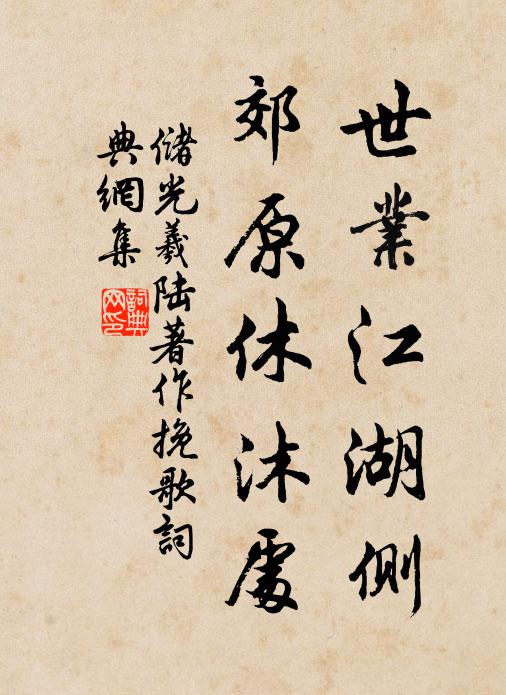 世業江湖側
郊原休沐處
儲光羲陸著作挽歌詞
典網集
詞典网印